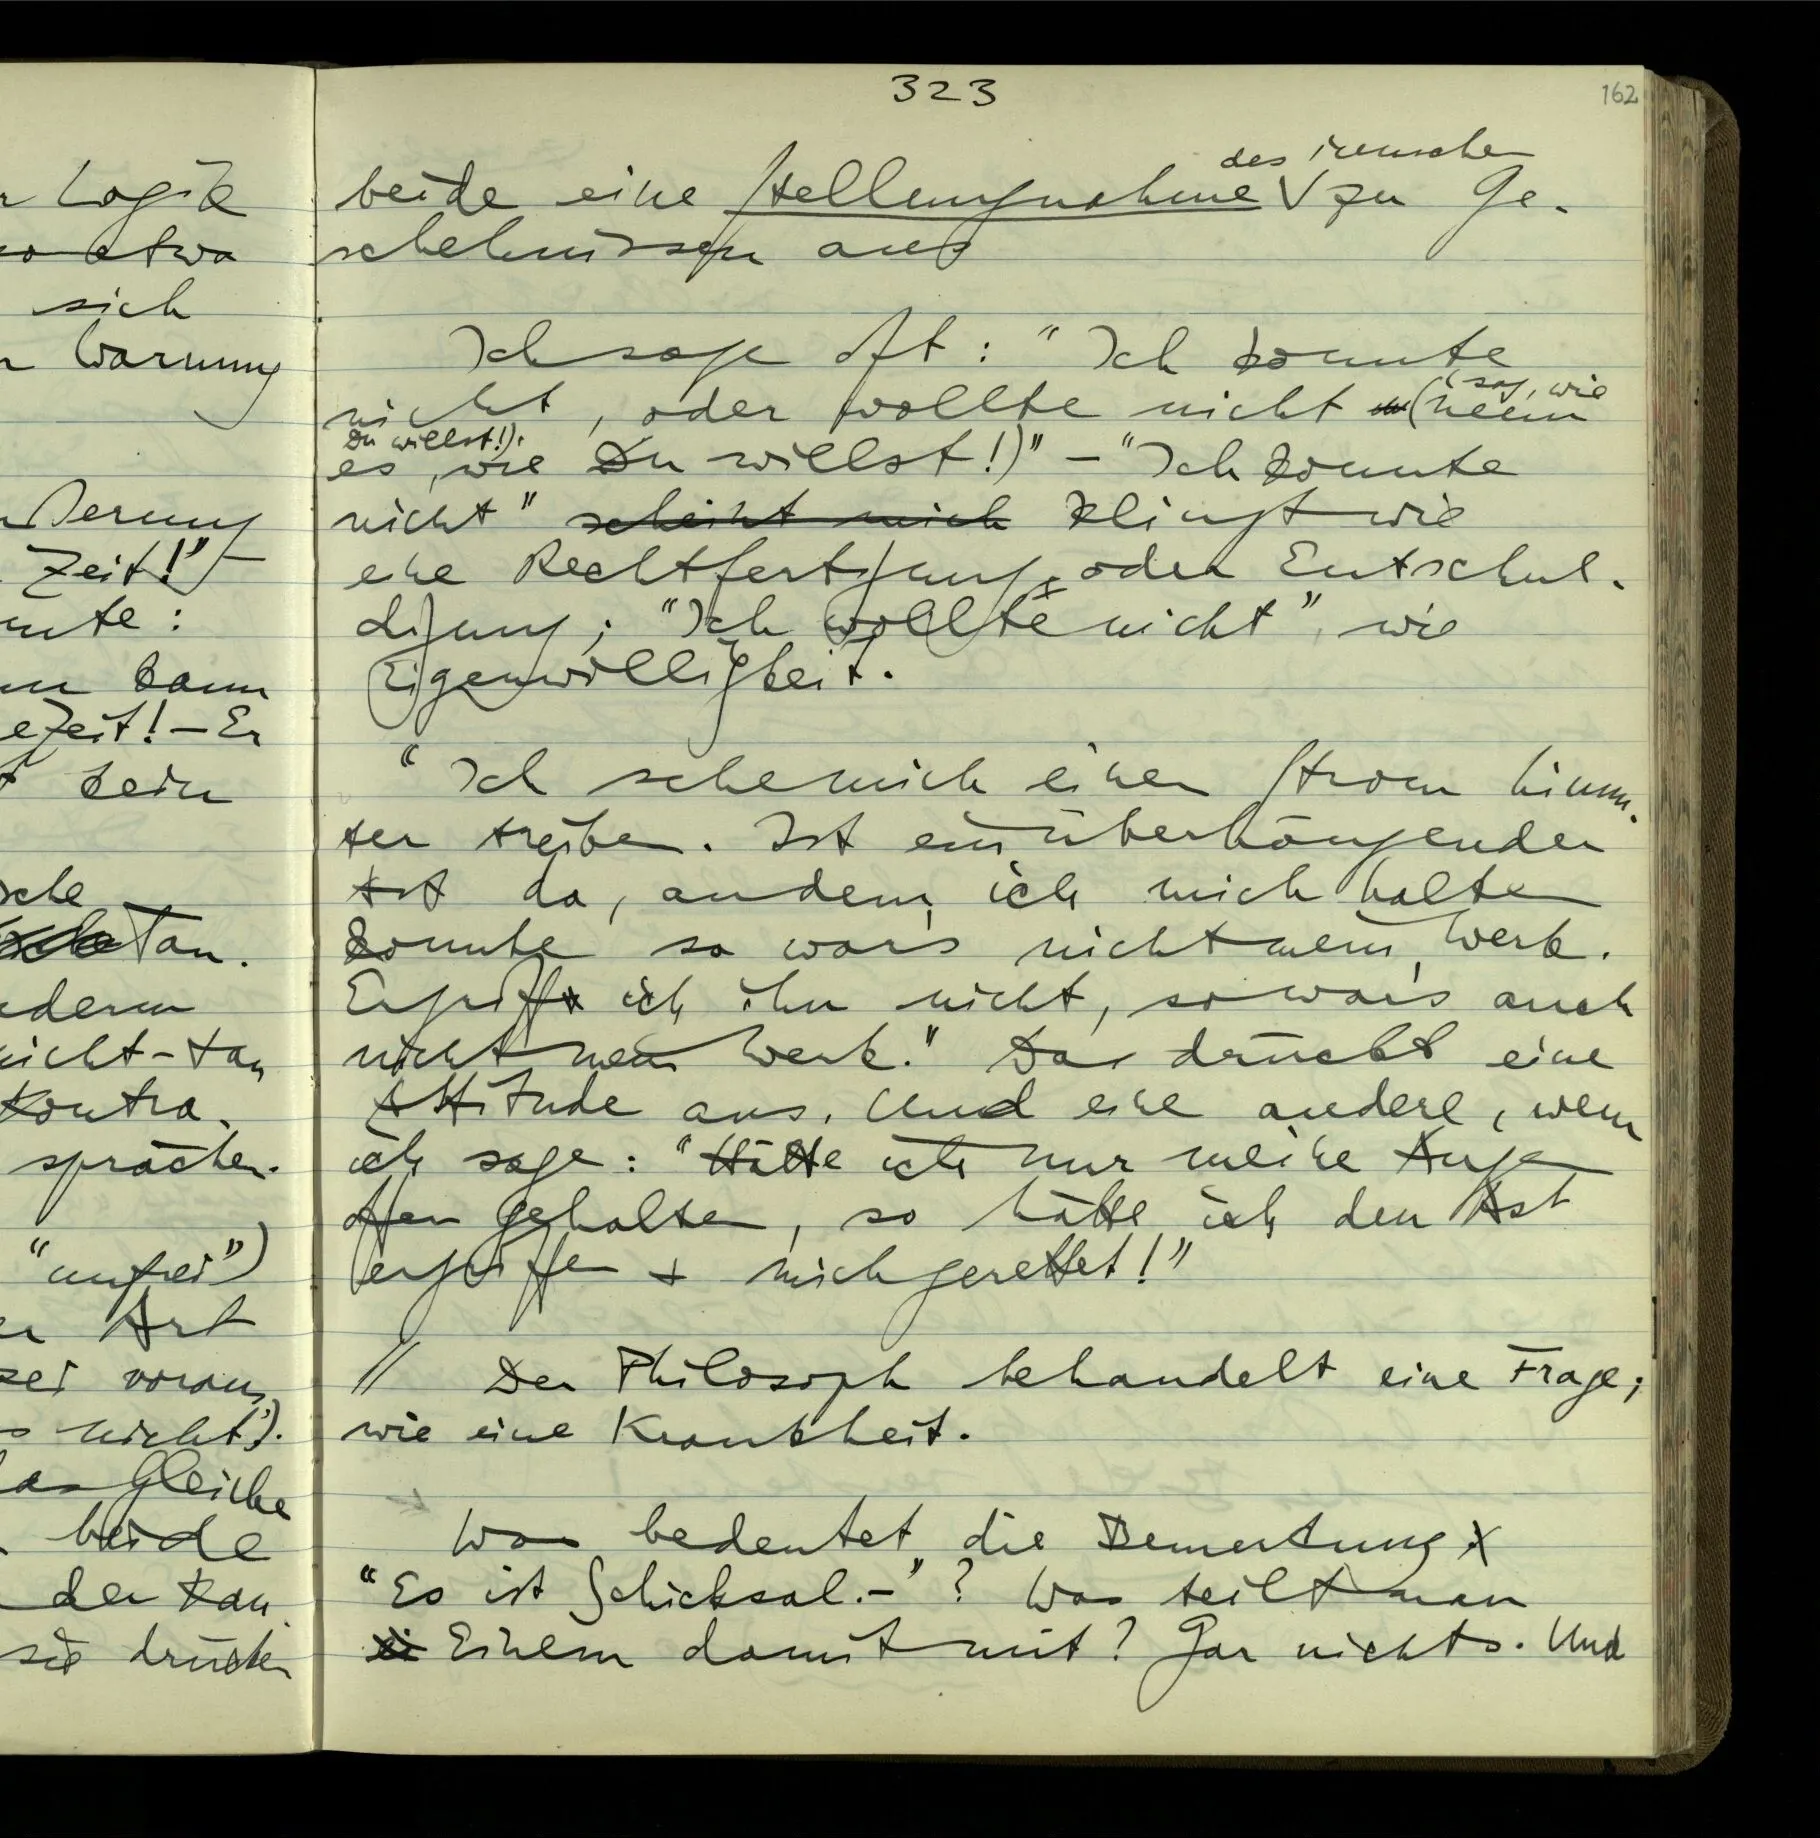 323
162
r Logik
so etwa
sich
r Warnung
Zeit!" –
kann
eZeit! – Er
kein
sche
Tan.
nderm
nicht-tan
Kontra-
sprächen.
"unfrei")
er Art
sei voraus
s nicht").
das Gleiche
beide
der kau
sie drücken
des Menschen
beide eine Stellungnahme ∨ zu Ge-
schehnissen aus
Ich sage oft: "Ich konnte
nicht, oder wollte nicht (nenn
, sag, wie
Du willst!).
es, wie Du willst!)" – "Ich konnte
nicht" scheint mich klingt wie
eine Rechtfertigung, oder Entschul-
digung; "Ich wollte nicht", wie
Eigenwilligkeit.
"Ich sehe mich einen Strom hinun-
ter treiben. Ist ein überhängender
Ast da, an dem ich mich halten
konnte so war's nicht mein Werk.
Ergriff ich ihn nicht, so war's auch
nicht mein Werk." Das drückt eine
Attitude aus. Und eine andere, wenn
ich sage: "Hätte ich nur meine Augen
offen gehalten, so hätte ich den Ast
ergriffen + mich gerettet!"
// Der Philosoph behandelt eine Frage;
wie eine Krankheit.
Was bedeutet die Bemerkung
"Es ist Schicksal. –" ? Was teilt man
ei Einem damit mit? Gar nichts. Und